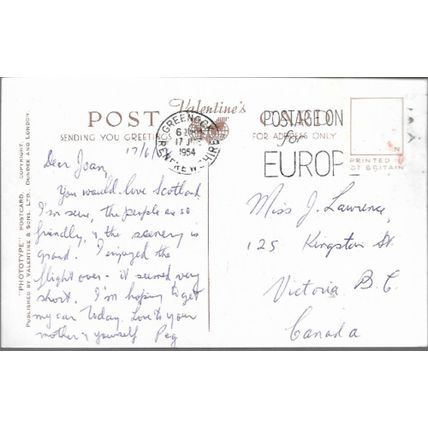 POST Valentine's CARD
SENDING YOU GREETINGS
FOR ADDRESS ONLY
GREENOCK
6
17
1954
RENFREWSHIRE
POSTAGE ON
for
EUROP
PRINTED
OF BRITAIN
"PHOTOTYPE" POSTCARD COPYRIGHT.
PUBLISHED BY VALENTINE & SONS, LTD. DUNDEE AND LONDON.
17/6/
Dear Joan,
You would love Scotland
I'm sure, the people are so
friendly, & the scenery is
grand. I enjoyed the
flight over - it seemed very
short. I'm hoping to get
my car today. Love to your
mother & yourself Peg
Miss J. Lawrence,
125 Kingston St.
Victoria B.C.
Canada